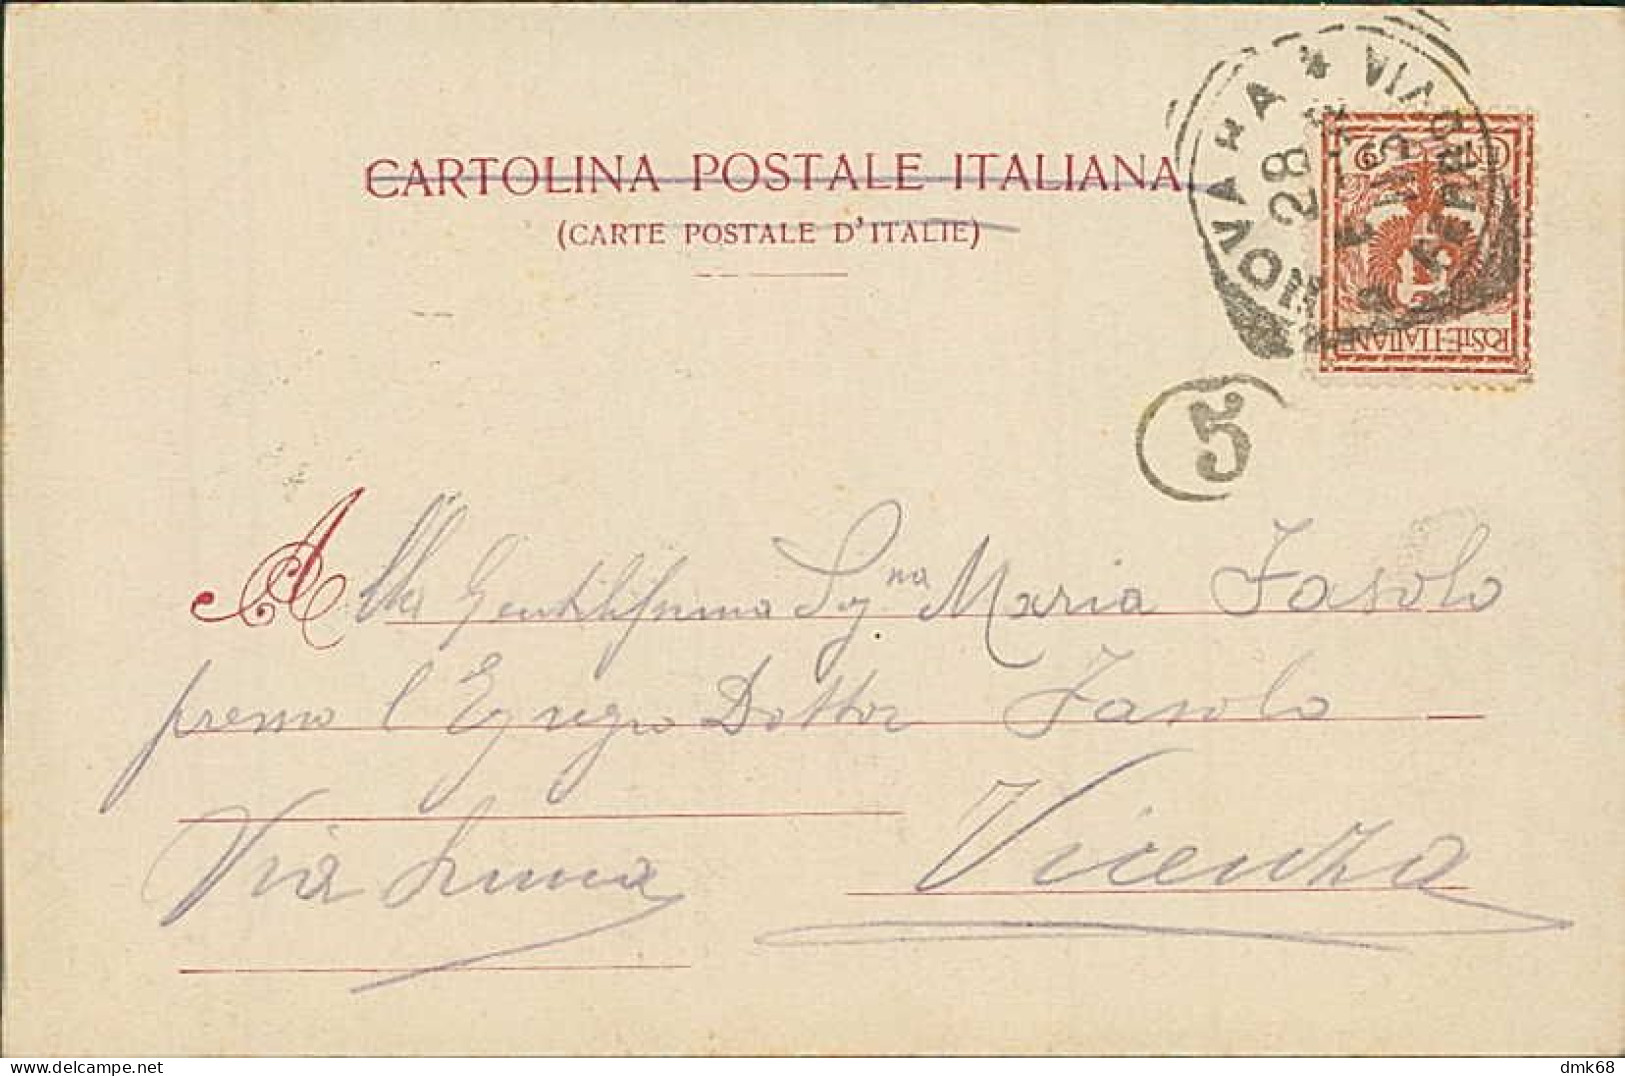 CARTOLINA POSTALE ITALIANA
(CARTE POSTALE D'ITALIE)
NOVARA * VIAGG
28
CENT
POSTE ITALIANE
5
Alla Gentilissima Signa Maria Fasolo
presso l'Egregio Dottor Fasolo
Vicenza
Via
dmk68